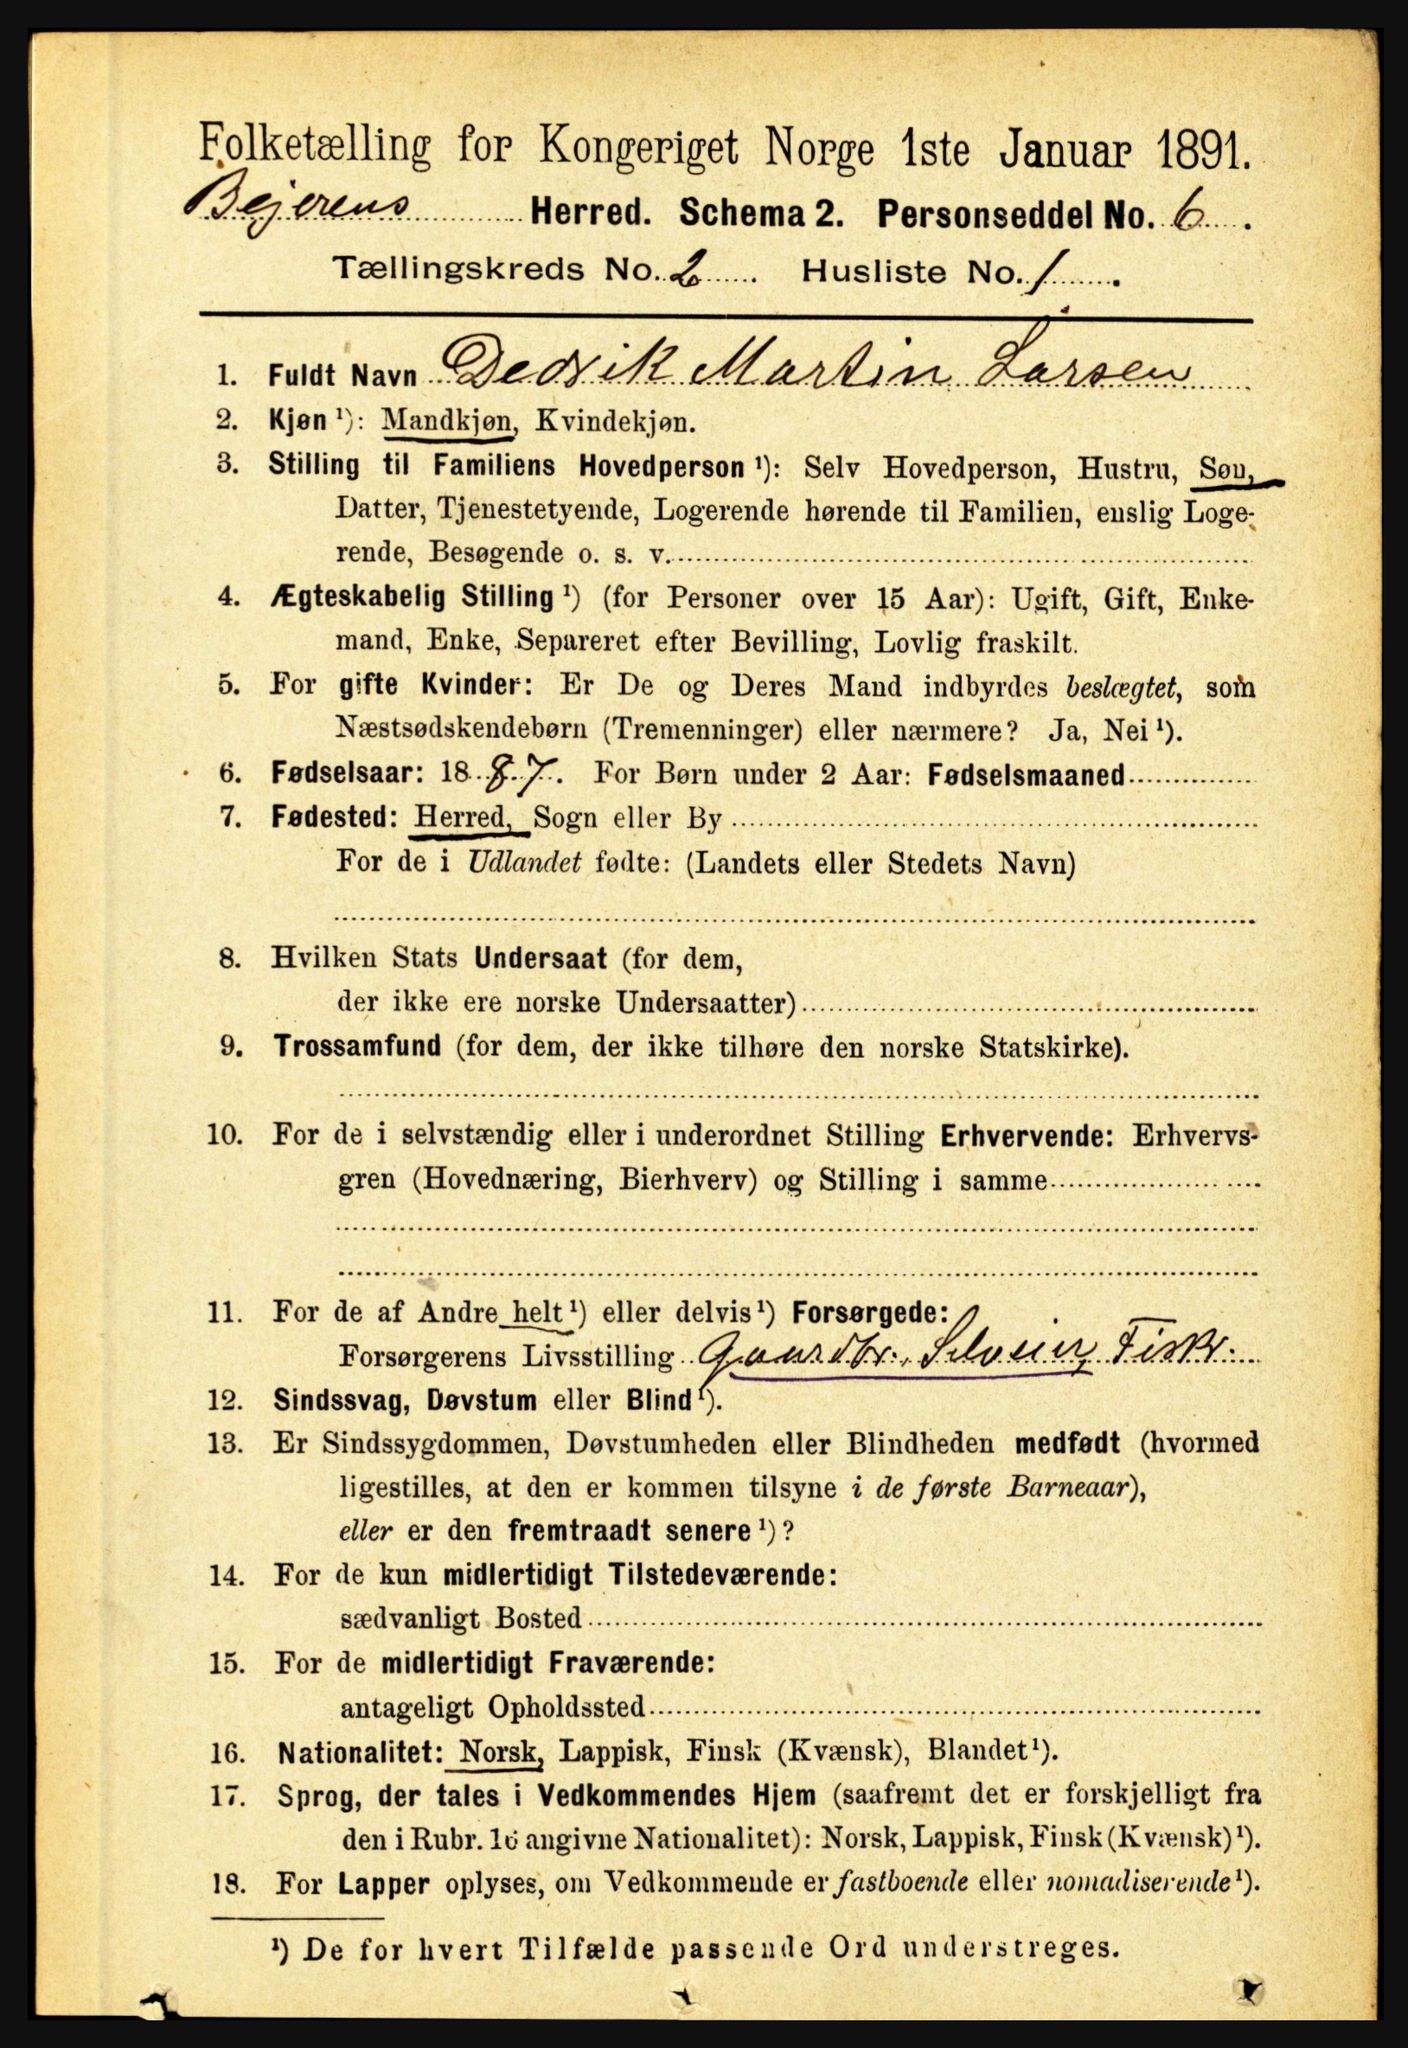 Folketælling for Kongeriget Norge 1ste Januar 1891.
Bejerens Herred. Schema 2. Personseddel No. 6.
Tællingskreds No. 2. Husliste No. 1.
1. Fuldt Navn Dedrik Martin Larsen
2. Kjøn ¹): Mandkjøn, Kvindekjøn.
3. Stilling til Familiens Hovedperson ¹): Selv Hovedperson, Hustru, Søn,
Datter, Tjenestetyende, Logerende hørende til Familien, enslig Loge-
rende, Besøgende o. s. v.
4. Ægteskabelig Stilling ¹) (for Personer over 15 Aar): Ugift, Gift, Enke-
mand, Enke, Separeret efter Bevilling, Lovlig fraskilt.
5. For gifte Kvinder: Er De og Deres Mand indbyrdes beslægtet, som
Næstsødskendebørn (Tremenninger) eller nærmere? Ja, Nei ¹).
6. Fødselsaar: 1887. For Børn under 2 Aar: Fødselsmaaned
7. Fødested: Herred, Sogn eller By
For de i Udlandet fødte: (Landets eller Stedets Navn)
8. Hvilken Stats Undersaat (for dem,
der ikke ere norske Undersaatter)
9. Trossamfund (for dem, der ikke tilhøre den norske Statskirke).
10. For de i selvstændig eller i underordnet Stilling Erhvervende: Erhvervs-
gren (Hovednæring, Bierhverv) og Stilling i samme
11. For de af Andre helt ¹) eller delvis ¹) Forsørgede:
Forsørgerens Livsstilling Gaardbr. Selveier, Fisker.
12. Sindssvag, Døvstum eller Blind ¹).
13. Er Sindssygdommen, Døvstumheden eller Blindheden medfødt (hvormed
ligestilles, at den er kommen tilsyne i de første Barneaar),
eller er den fremtraadt senere ¹)?
14. For de kun midlertidigt Tilstedeværende:
sædvanligt Bosted
15. For de midlertidigt Fraværende:
antageligt Opholdssted
16. Nationalitet: Norsk, Lappisk, Finsk (Kvænsk), Blandet ¹).
17. Sprog, der tales i Vedkommendes Hjem (saafremt det er forskjelligt fra
den i Rubr. 16 angivne Nationalitet): Norsk, Lappisk, Finsk (Kvænsk) ¹).
18. For Lapper oplyses, om Vedkommende er fastboende eller nomadiserende ¹).
¹) De for hvert Tilfælde passende Ord understreges.